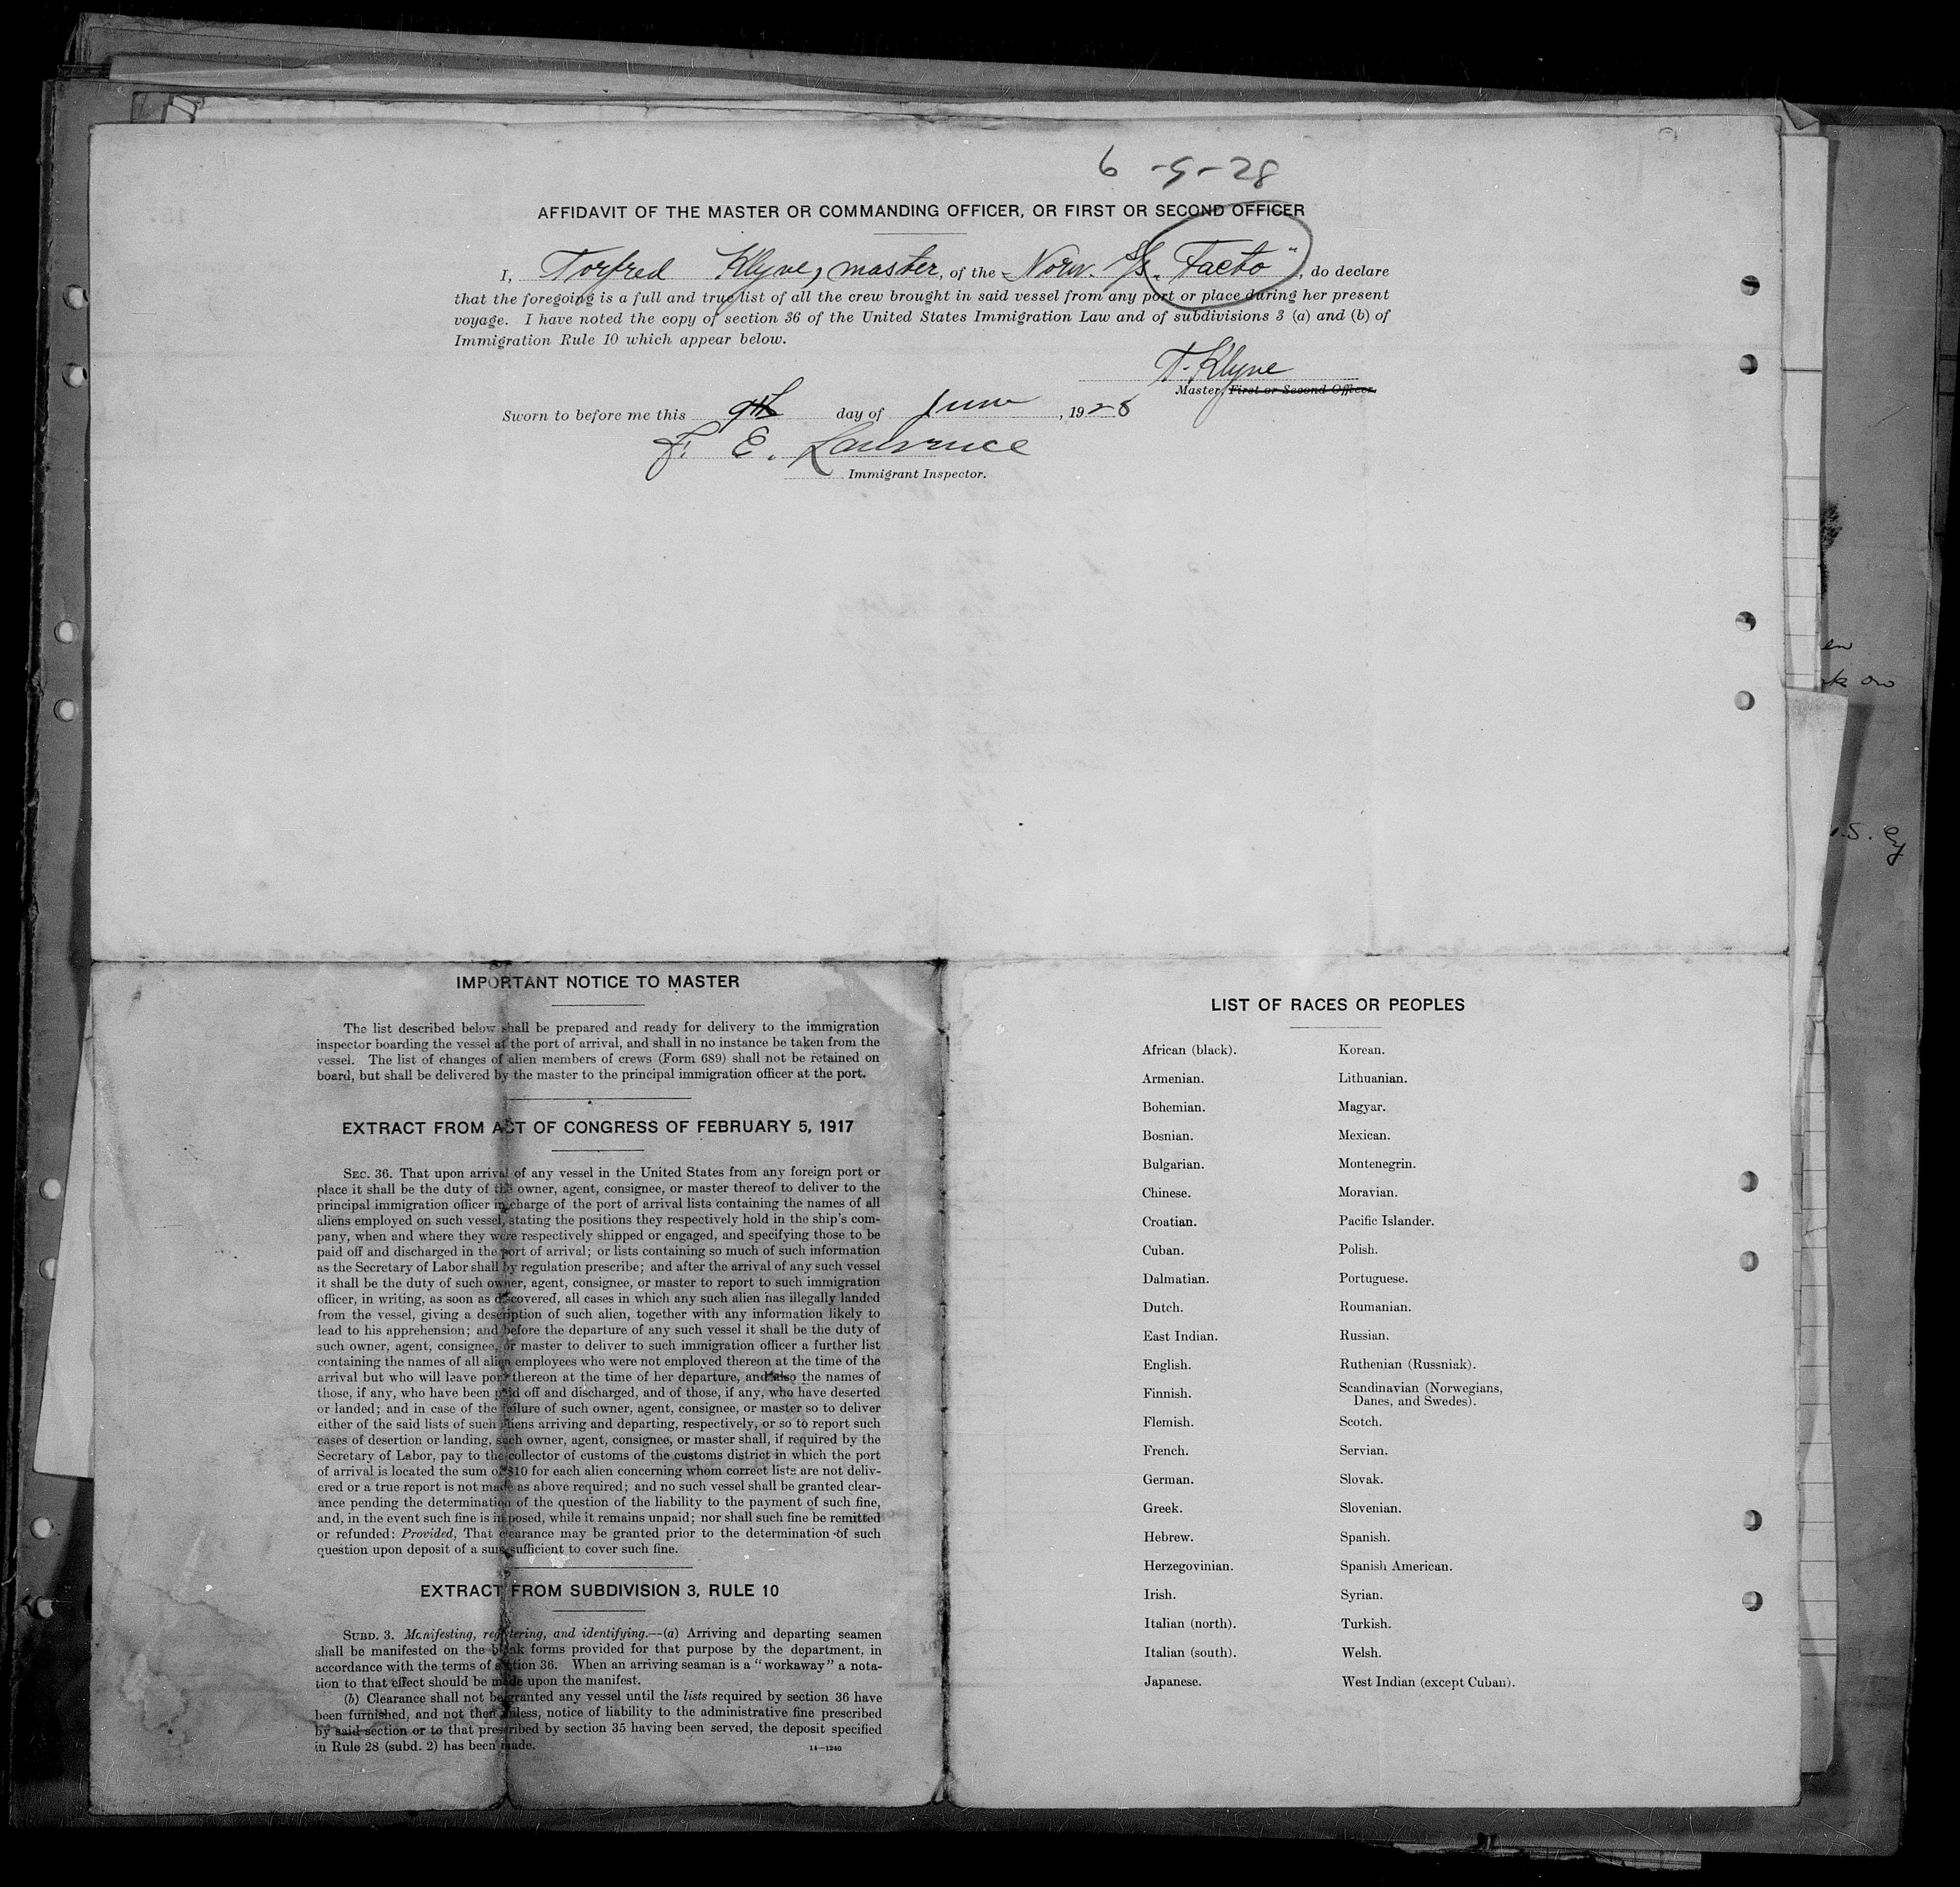 6-9-28
AFFIDAVIT OF THE MASTER OR COMMANDING OFFICER, OR FIRST OR SECOND OFFICER
I, Torfred Klyve, master, of the Norw. S/S. "Facto", do declare
that the foregoing is a full and true list of all the crew brought in said vessel from any port or place during her present
voyage. I have noted the copy of section 36 of the United States Immigration Law and of subdivisions 3 (a) and (b) of
Immigration Rule 10 which appear below.
T. Klyve
Master, First or Second Officer.
Sworn to before me this 9th day of June, 1928
F. E. Lawrence
Immigrant Inspector.
IMPORTANT NOTICE TO MASTER
The list described below shall be prepared and ready for delivery to the immigration
inspector boarding the vessel at the port of arrival, and shall in no instance be taken from the
vessel. The list of changes of alien members of crews (Form 689) shall not be retained on
board, but shall be delivered by the master to the principal immigration officer at the port.
EXTRACT FROM ACT OF CONGRESS OF FEBRUARY 5, 1917
SEC. 36. That upon arrival of any vessel in the United States from any foreign port or
place it shall be the duty of the owner, agent, consignee, or master thereof to deliver to the
principal immigration officer in charge of the port of arrival lists containing the names of all
aliens employed on such vessel, stating the positions they respectively hold in the ship's com-
pany, when and where they were respectively shipped or engaged, and specifying those to be
paid off and discharged in the port of arrival; or lists containing so much of such information
as the Secretary of Labor shall by regulation prescribe; and after the arrival of any such vessel
it shall be the duty of such owner, agent, consignee, or master to report to such immigration
officer, in writing, as soon as discovered, all cases in which any such alien has illegally landed
from the vessel, giving a description of such alien, together with any information likely to
lead to his apprehension; and before the departure of any such vessel it shall be the duty of
such owner, agent, consignee, or master to deliver to such immigration officer a further list
containing the names of all alien employees who were not employed thereon at the time of the
arrival but who will leave port thereon at the time of her departure, and also the names of
those, if any, who have been paid off and discharged, and of those, if any, who have deserted
or landed; and in case of the failure of such owner, agent, consignee, or master so to deliver
either of the said lists of such aliens arriving and departing, respectively, or so to report such
cases of desertion or landing, such owner, agent, consignee, or master shall, if required by the
Secretary of Labor, pay to the collector of customs of the customs district in which the port
of arrival is located the sum of $10 for each alien concerning whom correct lists are not deliv-
ered or a true report is not made as above required; and no such vessel shall be granted clear-
ance pending the determination of the question of the liability to the payment of such fine,
and, in the event such fine is imposed, while it remains unpaid; nor shall such fine be remitted
or refunded: Provided, That clearance may be granted prior to the determination of such
question upon deposit of a sum sufficient to cover such fine.
EXTRACT FROM SUBDIVISION 3, RULE 10
SUBD. 3. Manifesting, registering, and identifying.—(a) Arriving and departing seamen
shall be manifested on the blank forms provided for that purpose by the department, in
accordance with the terms of section 36. When an arriving seaman is a "workaway" a nota-
tion to that effect should be made upon the manifest.
(b) Clearance shall not be granted any vessel until the lists required by section 36 have
been furnished, and not then unless, notice of liability to the administrative fine prescribed
by said section or to that prescribed by section 35 having been served, the deposit specified
in Rule 28 (subd. 2) has been made.
14—1240
LIST OF RACES OR PEOPLES
African (black).
Armenian.
Bohemian.
Bosnian.
Bulgarian.
Chinese.
Croatian.
Cuban.
Dalmatian.
Dutch.
East Indian.
English.
Finnish.
Flemish.
French.
German.
Greek.
Hebrew.
Herzegovinian.
Irish.
Italian (north).
Italian (south).
Japanese.
Korean.
Lithuanian.
Magyar.
Mexican.
Montenegrin.
Moravian.
Pacific Islander.
Polish.
Portuguese.
Roumanian.
Russian.
Ruthenian (Russniak).
Scandinavian (Norwegians,
Danes, and Swedes).
Scotch.
Servian.
Slovak.
Slovenian.
Spanish.
Spanish American.
Syrian.
Turkish.
Welsh.
West Indian (except Cuban).